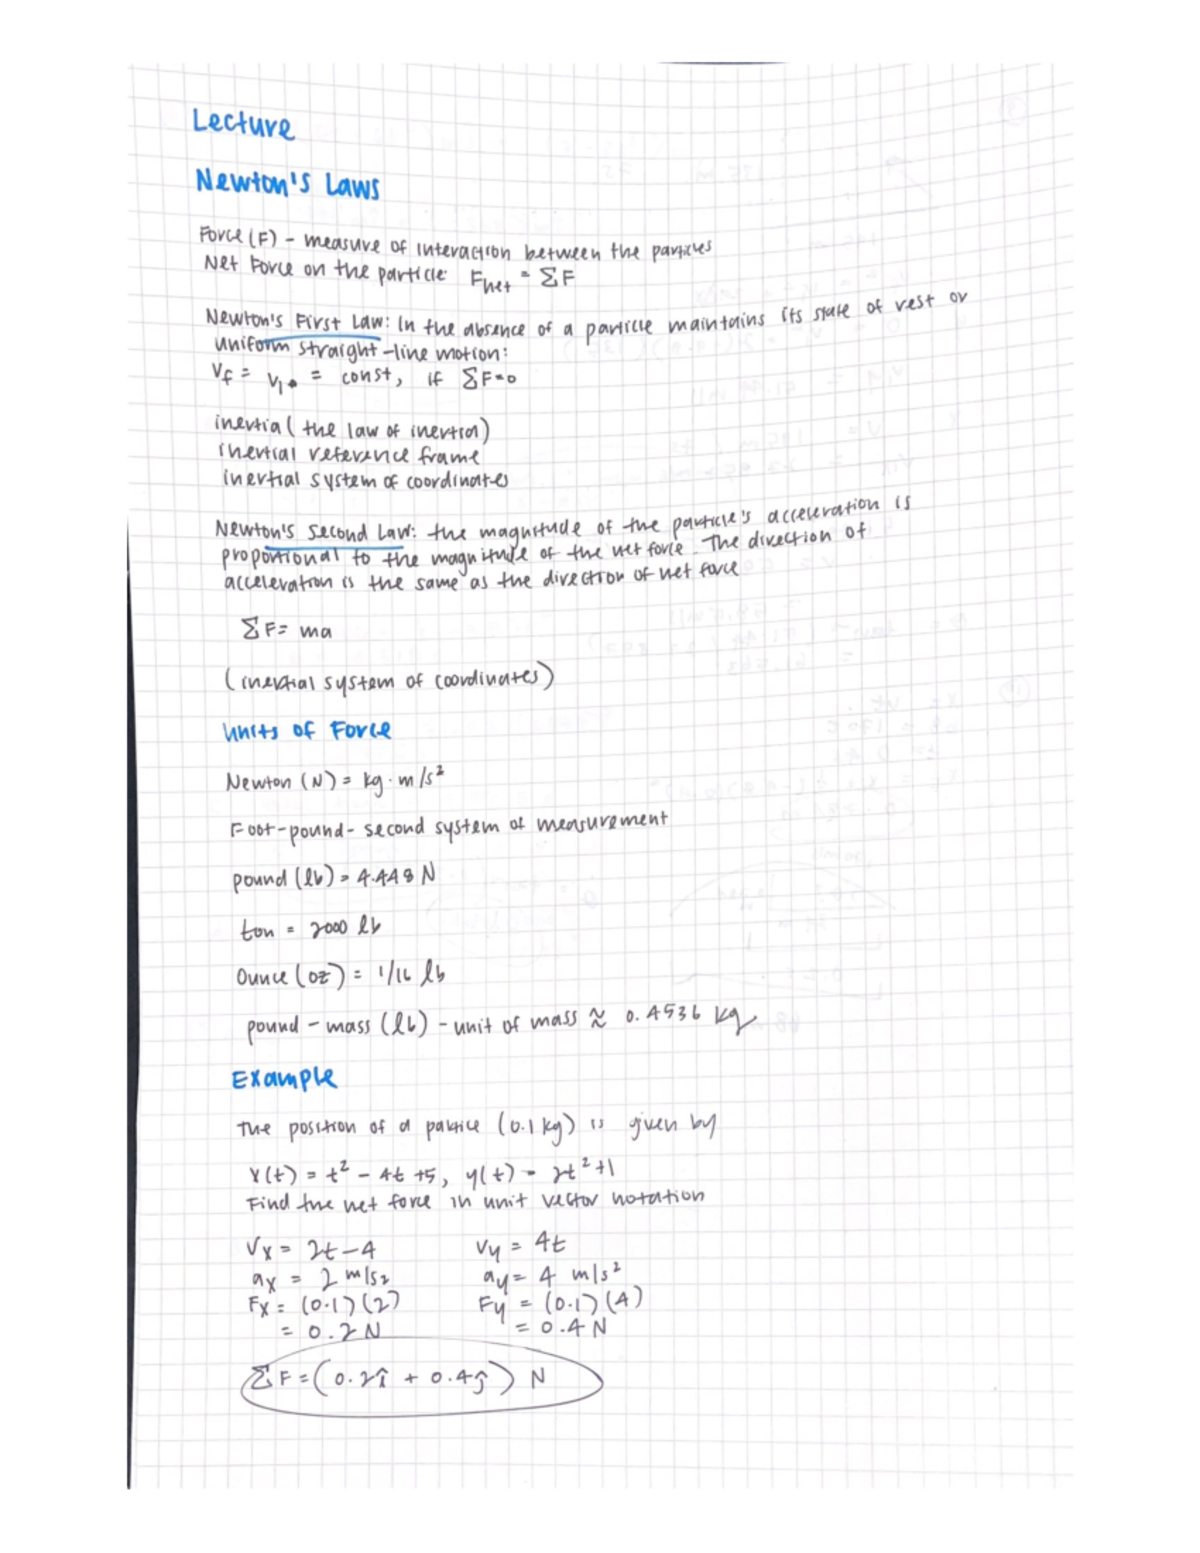 Lecture
Newton's Laws
Force (F) - measure of interaction between the particles
Net Force on the particle: Fnet = ΣF
Newton's First Law: In the absence of a particle maintains its state of rest or
uniform straight-line motion:
Vf = Vi = const, if ΣF=0
inertia (the law of inertia)
inertial reference frame
inertial system of coordinates
Newton's Second Law: the magnitude of the particle's acceleration is
proportional to the magnitude of the net force. The direction of
acceleration is the same as the direction of net force
ΣF = ma
(inertial system of coordinates)
Units of Force
Newton (N) = kg · m/s²
Foot-pound-second system of measurement
pound (lb) = 4.448 N
ton = 2000 lb
Ounce (oz) = 1/16 lb
pound - mass (lb) - unit of mass ≈ 0.4536 kg
Example
The position of a particle (0.1 kg) is given by
x(t) = t² - 4t +5, y(t) = 2t²+1
Find the net force in unit vector notation
Vx = 2t-4 Vy = 4t
ax = 2 m/s2 ay = 4 m/s²
Fx = (0.1)(2) Fy = (0.1)(4)
= 0.2 N = 0.4 N
ΣF = (0.2î + 0.4ĵ) N